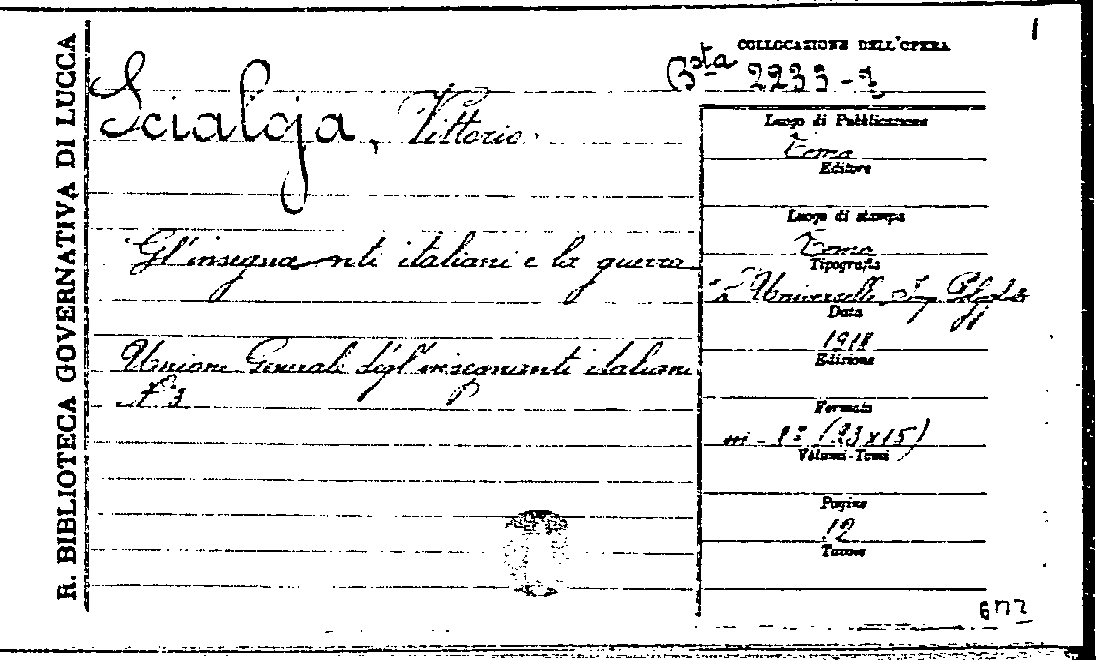 R. BIBLIOTECA GOVERNATIVA DI LUCCA
1
COLLOCAZIONE DELL'OPERA
Bsta 2233-2
Scialoja, Vittorio.
Luogo di Pubblicazione
Roma
Editore
Luogo di stampa
Roma
Tipografia
"L'Universelle" Imp. 
Data
1918
Edizione
Gl'insegnanti italiani e la guerra
Unione Generale degl'insegnanti italiani
Formato
in-8° (23x15)
Volumi-Tomi
Pagine
12
Tavole